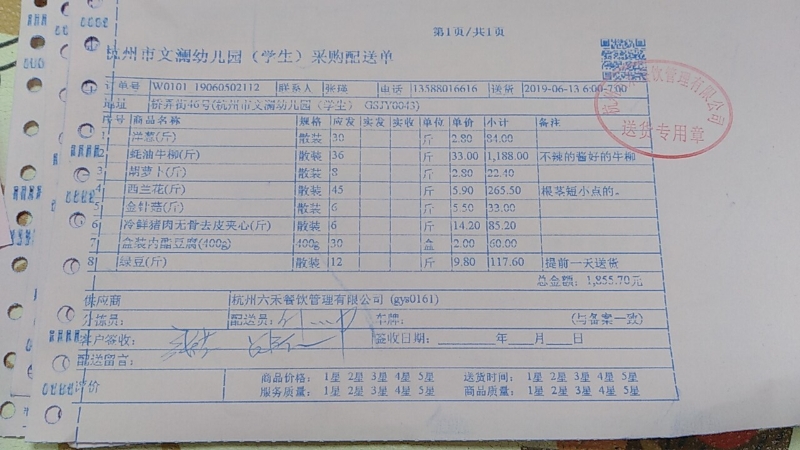 第1页/共1页
杭州市文澜幼儿园（学生）采购配送单
单号 W0101 19060502112 联系人 张瑶 电话 13588016616 送货 2019-06-13 6:00-7:00
地址 桥弄街46号(杭州市文澜幼儿园（学生） GSJY0043)
序号 商品名称 规格 应发 实发 实收 单位 单价 小计 备注
1 洋葱(斤) 散装 30 斤 2.80 84.00
2 蚝油牛柳(斤) 散装 36 斤 33.00 1,188.00 不辣的酱好的牛柳
3 胡萝卜(斤) 散装 8 斤 2.80 22.40
4 西兰花(斤) 散装 45 斤 5.90 265.50 根茎短小点的。
5 金针菇(斤) 散装 6 斤 5.50 33.00
6 冷鲜猪肉无骨去皮夹心(斤) 散装 6 斤 14.20 85.20
7 盒装内酯豆腐(400g) 400g 30 盒 2.00 60.00
8 绿豆(斤) 散装 12 斤 9.80 117.60 提前一天送货
总金额：1,855.70元
供应商 杭州六禾餐饮管理有限公司 (gys0161)
分拣员： 配送员： 车牌： (与备案一致)
客户签收： 签收日期： 年 月 日
配送留言：
评价 商品价格： 1星 2星 3星 4星 5星 送货时间： 1星 2星 3星 4星 5星
服务质量： 1星 2星 3星 4星 5星 商品质量： 1星 2星 3星 4星 5星
餐饮管理有限公司
送货专用章